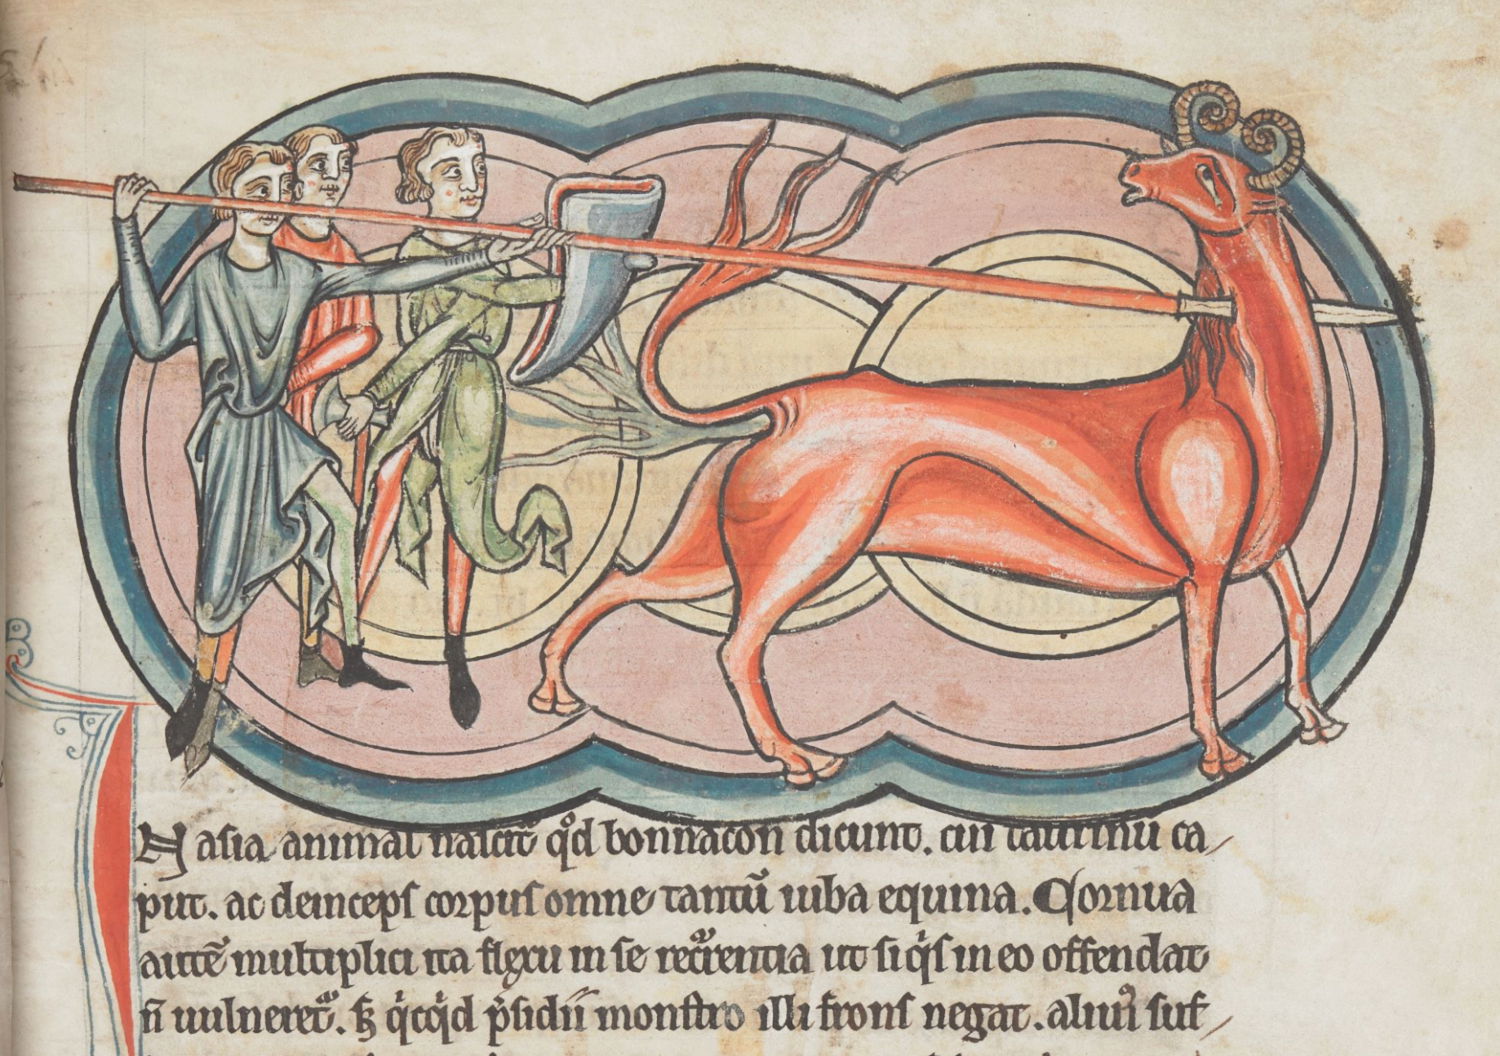 N asia animal nascit̄ qđ bonnacon dicunt. cui taurinū ca/
put. ac deinceps corpus omne tantū iuba equina. Cornua
autē multiplici ita flexu in se recͬrentia ut si qͥs in eo offendat
ñ uulneretͬ. sꝫ qͥcqͥd p̄sidii monstro illi frons negat. aluus suf/